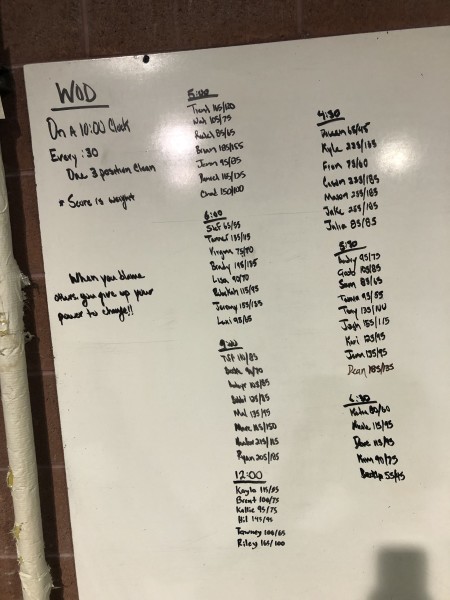 WOD
On A 10:00 Clock
Every :30
One 3 position Clean
* Score is weight
When you blame
others, you give up your
power to change!!
5:00
165/120
105/75
85/65
Brian 185/155
95/85
165/125
Chad 150/100
6:00
65/55
Tanner 135/115
75/70
Brady 195/135
Lisa 90/70
Rebekah 115/95
Jeremy 155/135
Lexi 95/65
9:00
110/85
90/70
105/85
125/85
Mel 135/95
Marc 165/150
Hunter 215/115
Ryan 205/185
12:00
Kayla 115/85
Brent 100/75
Kallie 95/75
Hil 145/95
Tawney 100/65
Riley 165/100
4:30
65/45
Kyle 235/185
Fran 75/60
225/185
Mason 255/185
Jake 255/185
Julia 85/85
5:30
Andy 95/75
105/85
Sam 85/65
95/85
Tony 135/100
Josh 155/115
Kari 125/95
Jenn 135/95
Dean 185/135
6:30
Katie 80/60
Nicole 115/95
Dave 115/95
Kim 90/75
55/45